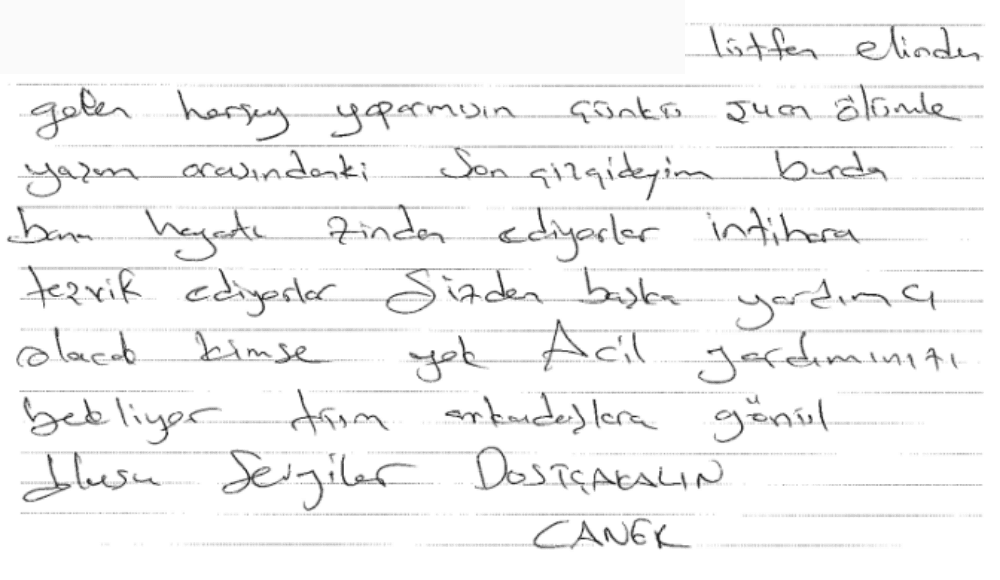 lütfen elinden
gelen herşey yaparmısın çünkü şuan ölümle
yaşam arasındanki son çizgideyim burda
bana hayatı zindan ediyorlar intihara
tezvik ediyorlar Sizden başka yardımcı
olacak kimse yok Acil yardımınızı
bekliyor tüm arkadaşlara gönül
dlusu Sevgiler DOSTÇAKALIN
CANEK